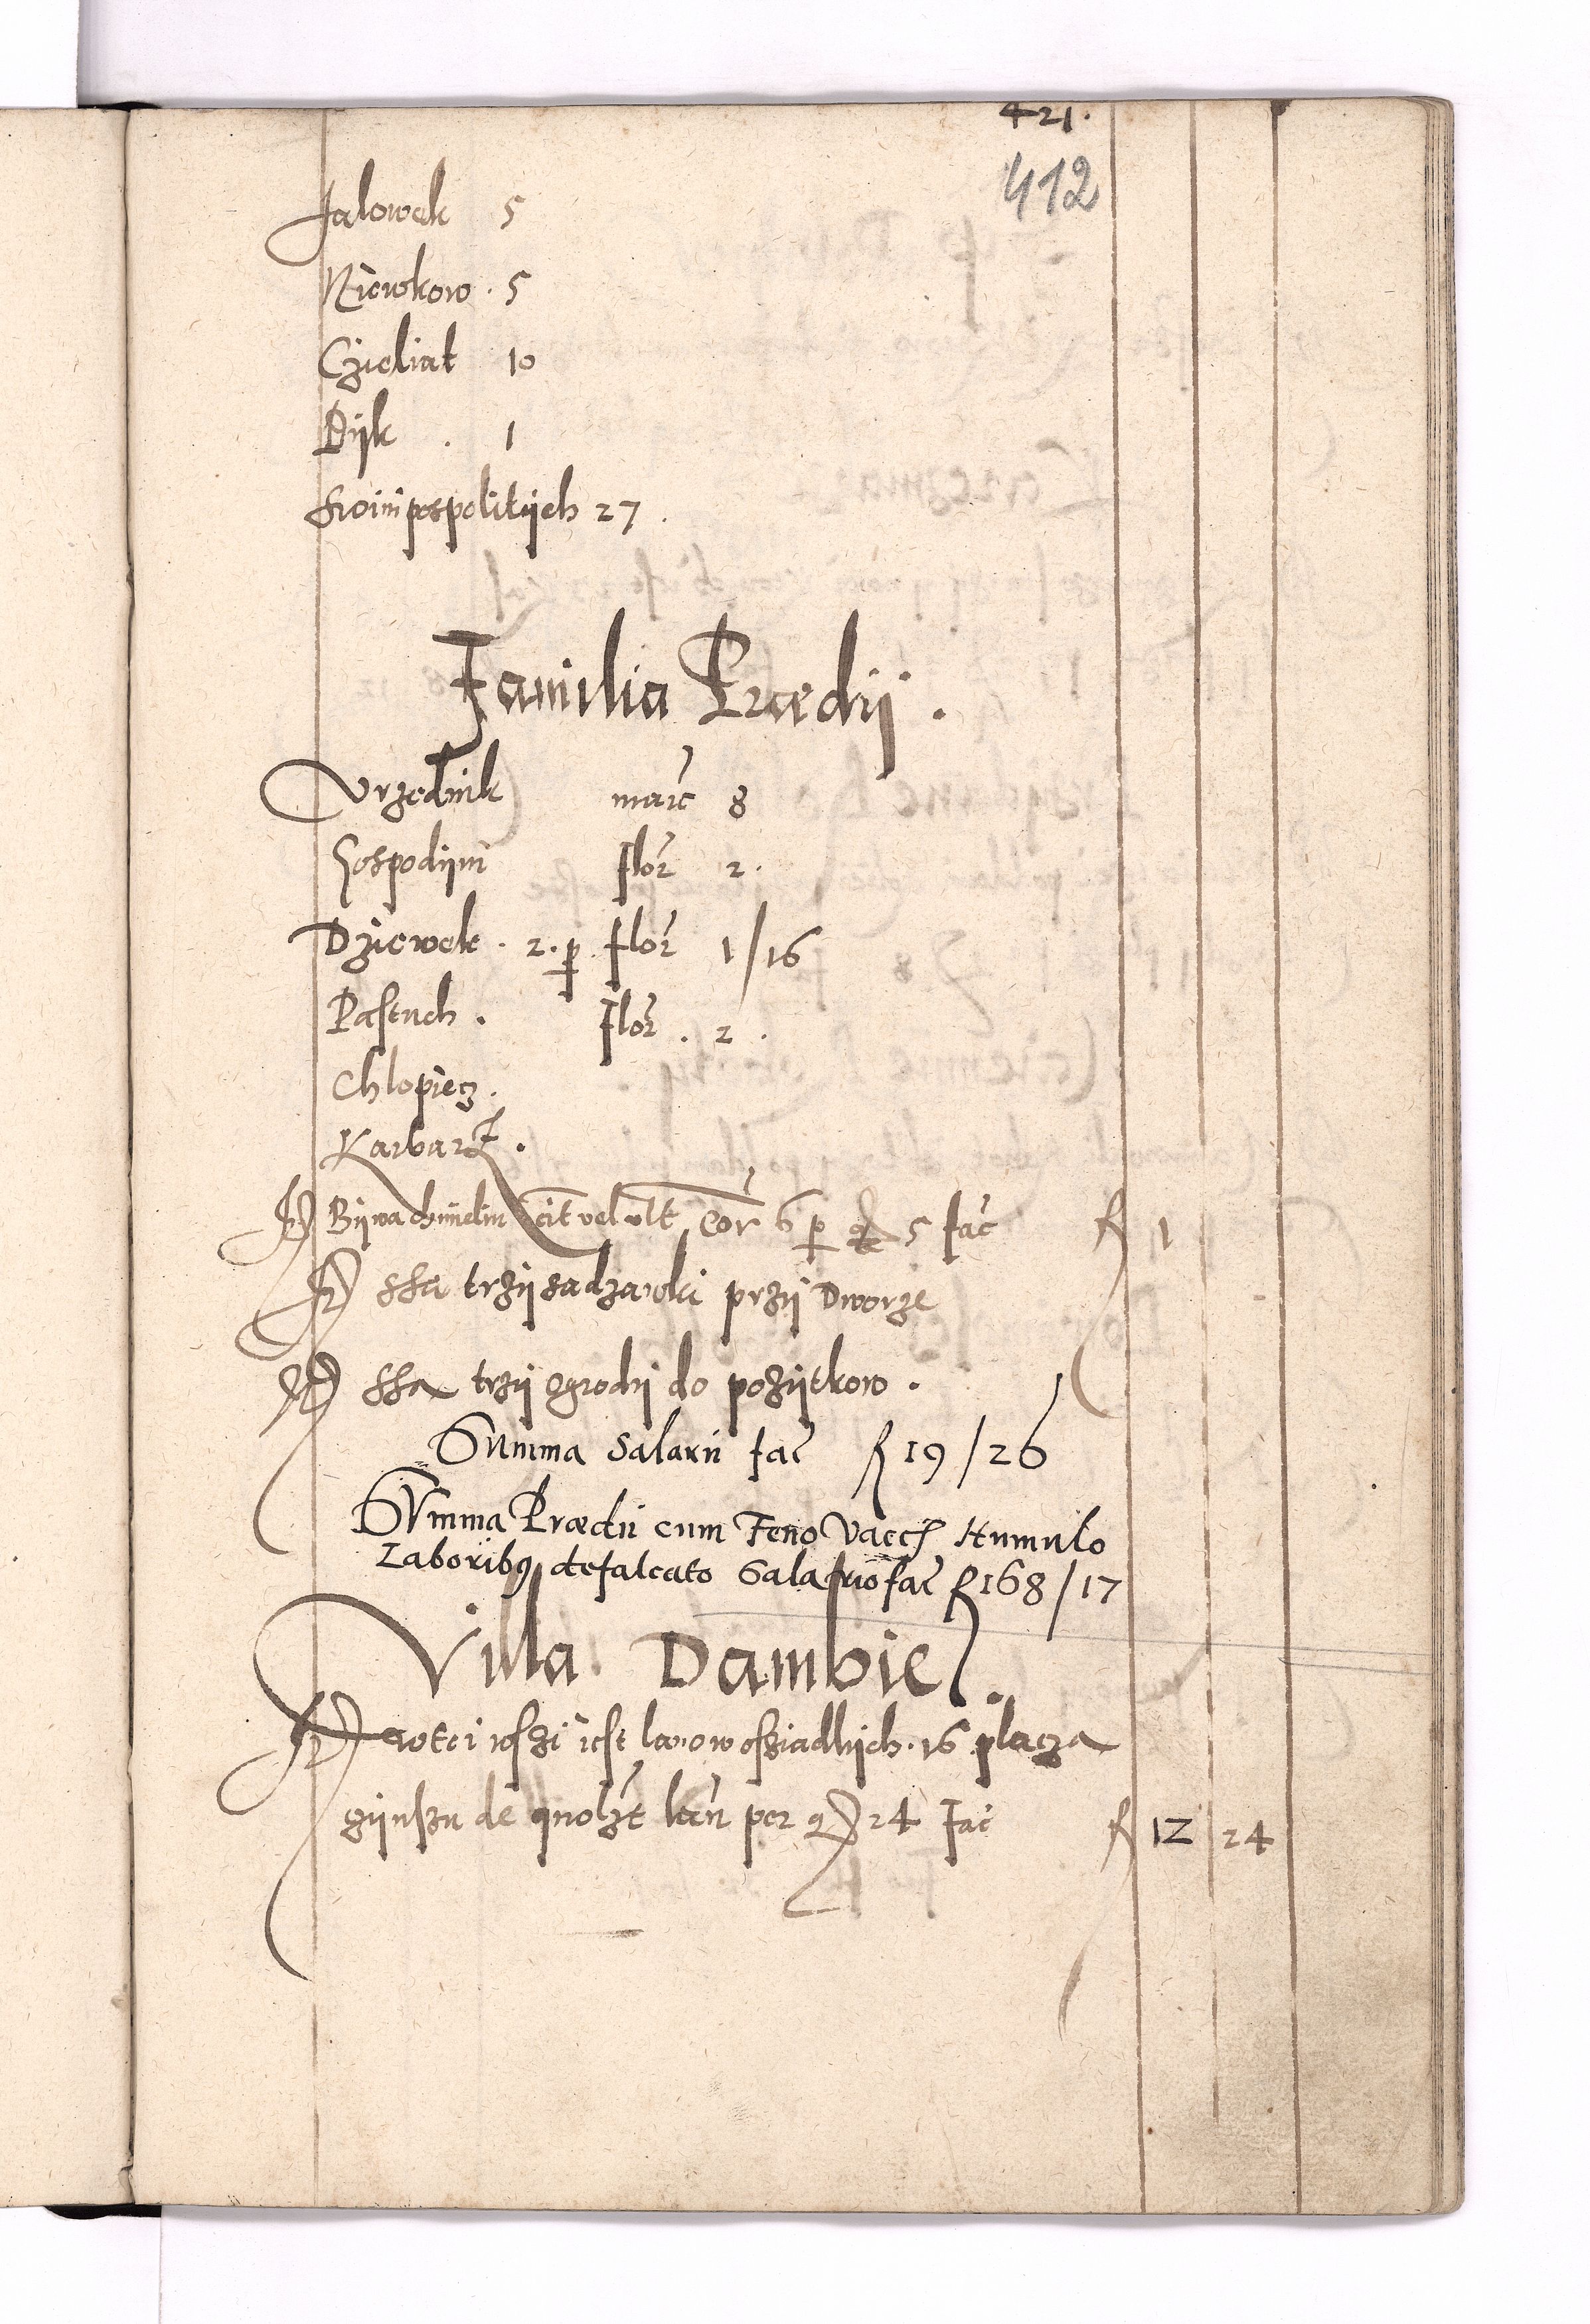 421.
412
Jalowek 5
Niowkow . 5
Czieliat 10
Bijk . 1
Swini pospolitijch 27 .
Familia Prædij .
Vrzednik marc 8
Gospodijni flor 2 .
Dziewek . 2 . p flor 1/16
Pastuch . Flor . 2 .
Chlopiecz .
Karbarz .
Bijwa chmeliu cit vel vlt Cor 6 p 5 fac 1
ssa trzij sadzawki przij Dworze
ssa trzij ogrodij do pozijtkow .
Summa Salarii fac 19/26
Summa Prædii cum Feno Vacc Humulo
Laboribus defalcato Salario fac 168/17
Villa Dambie .
w tei wszi iest lanow osziadlijch . 16 placza
czijnszu de quolzt lan per 24 Fac 12 24